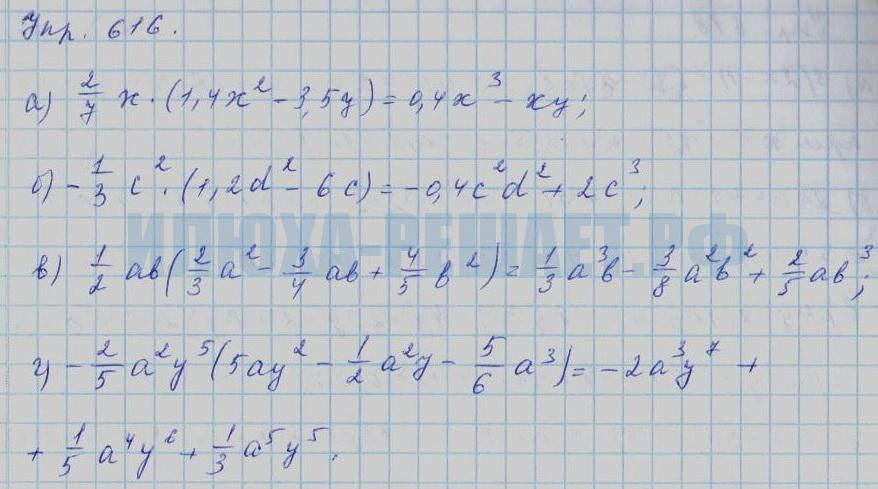 Упр. 616.
а) 2/7 x · (1,4x² - 3,5y) = 0,4x³ - xy;
б) - 1/3 c² · (1,2d² - 6c) = -0,4c²d² + 2c³;
ИЛЮХА-РЕШАЕТ.РФ
в) 1/2 ab(2/3 a² - 3/4 ab + 4/5 b²) = 1/3 a³b - 3/8 a²b² + 2/5 ab³;
г) - 2/5 a²y⁵(5ay² - 1/2 a²y - 5/6 a³) = -2a³y⁷ +
+ 1/5 a⁴y⁶ + 1/3 a⁵y⁵.